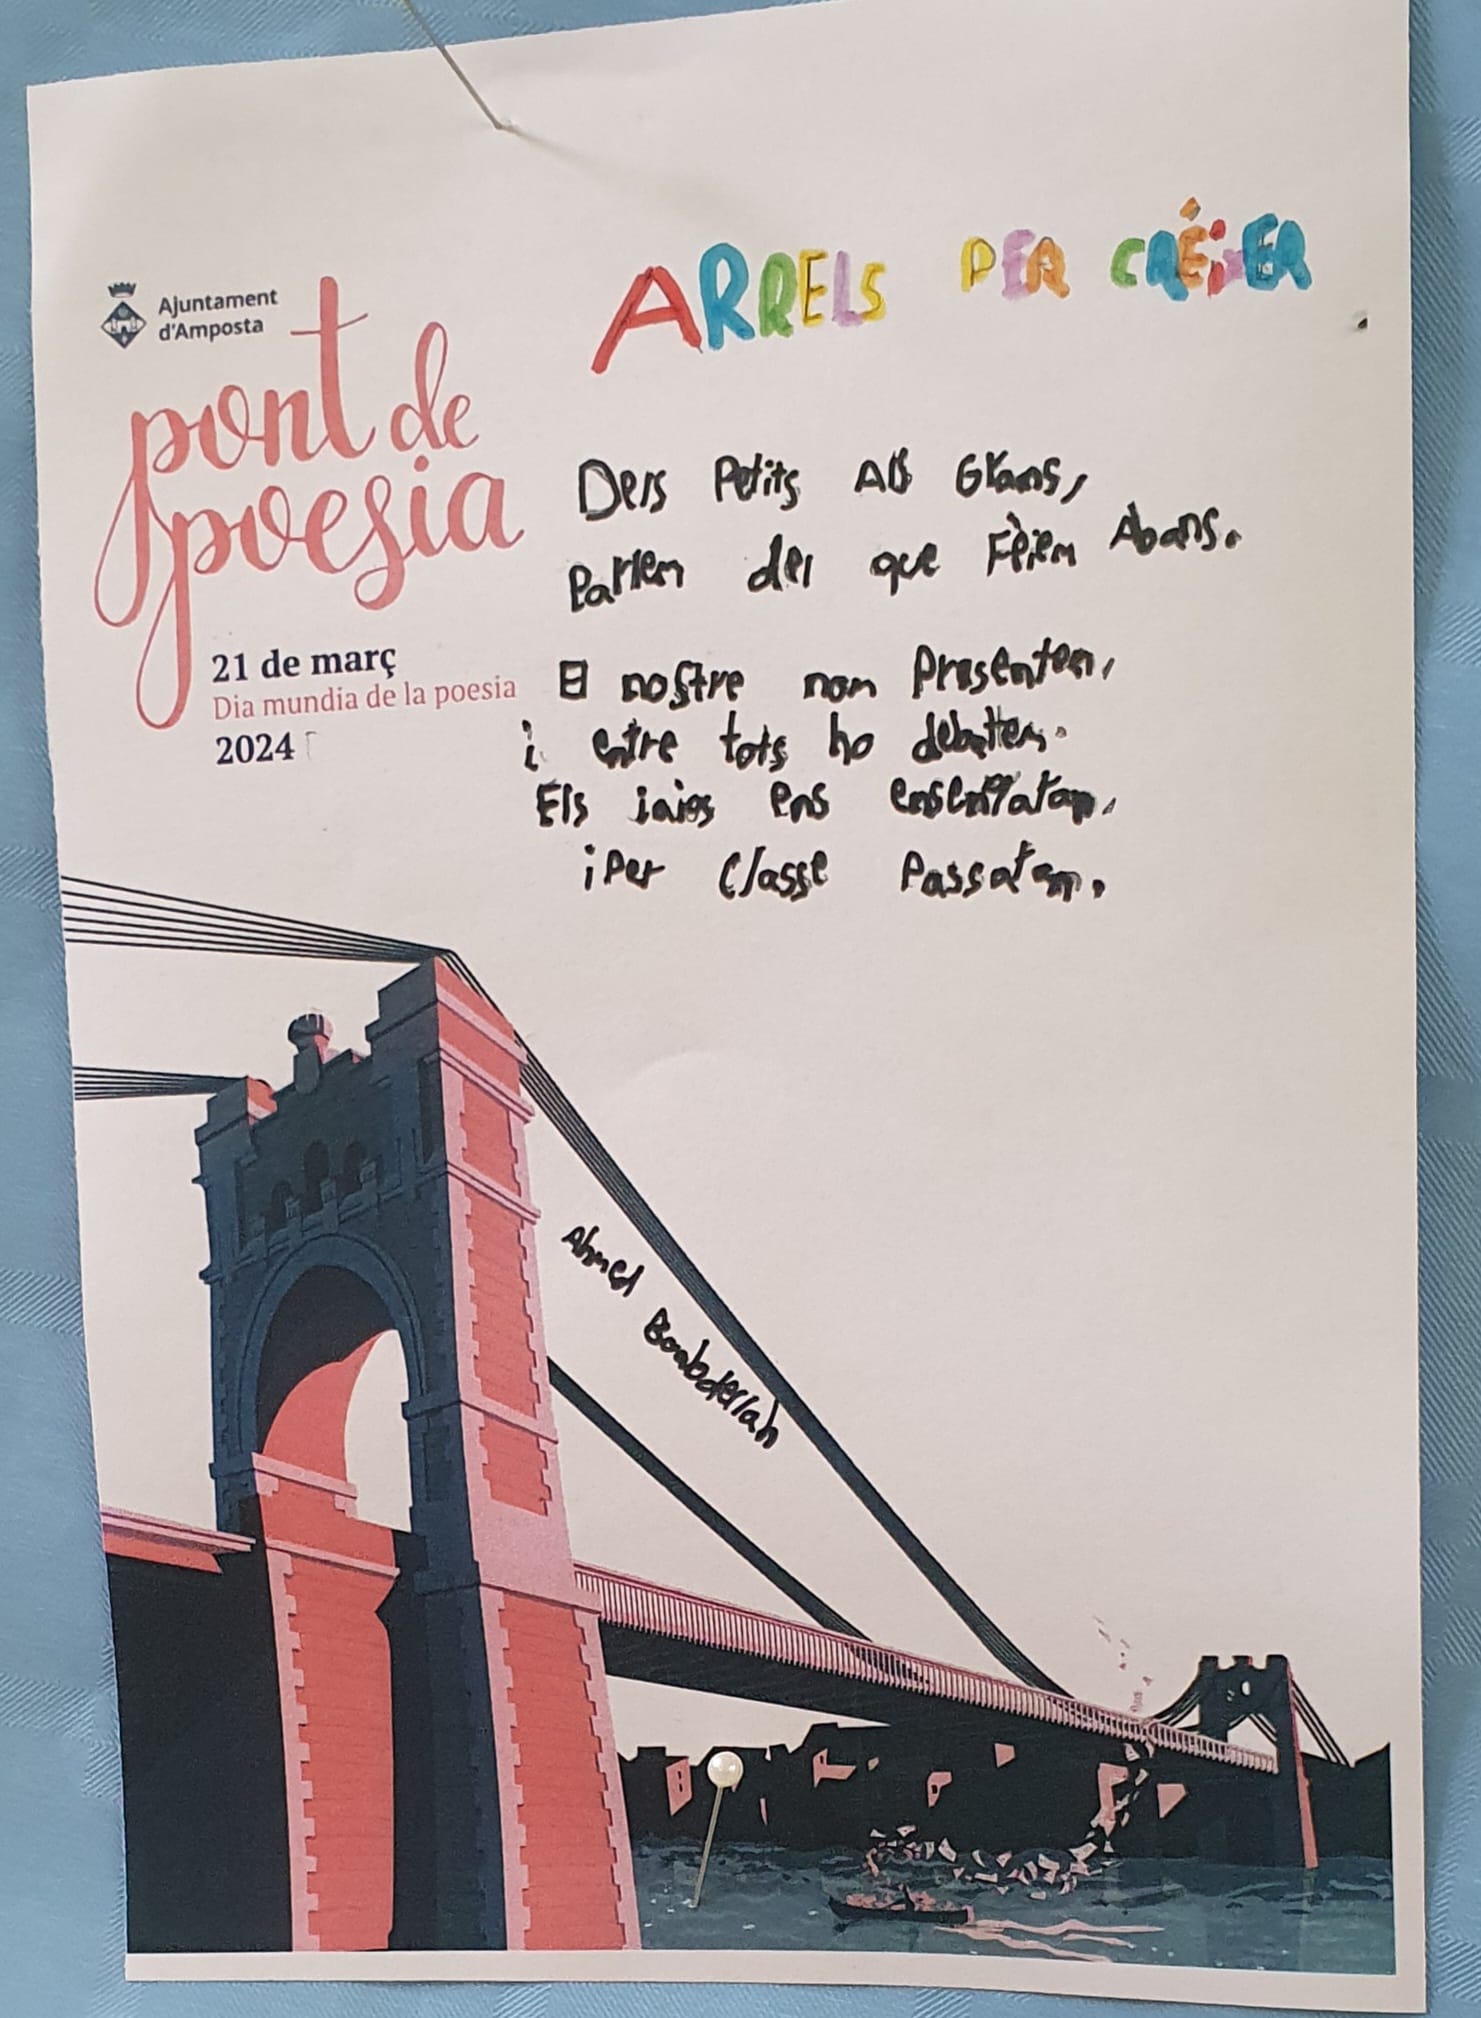 Ajuntament
d'Amposta
pont de
poesia
21 de març
Dia mundia de la poesia
2024
ARRELS PER CRÉIXER
Dels Petits Als Grans,
Parlem del que Fèiem Abans.
El nostre nom Presentem,
i entre tots ho debattem.
Els iaios ens
i Per Classe
Ahmed